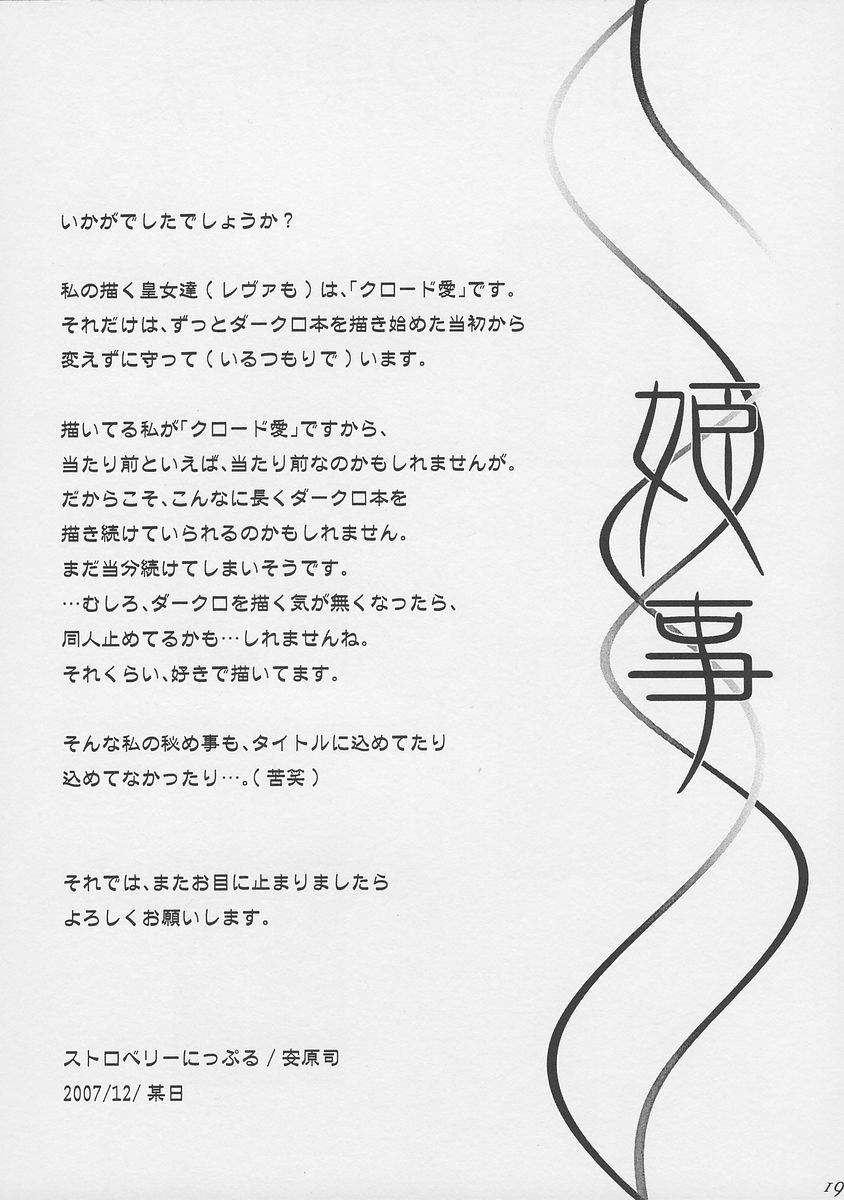 いかがでしたでしょうか？
私の描く皇女達（レヴァも）は、「クロード愛」です。
それだけは、ずっとダークロ本を描き始めた当初から
変えずに守って（いるつもりで）います。
描いてる私が「クロード愛」ですから、
当たり前といえば、当たり前なのかもしれませんが。
だからこそ、こんなに長くダークロ本を
描き続けていられるのかもしれません。
まだ当分続けてしまいそうです。
…むしろ、ダークロを描く気が無くなったら、
同人止めてるかも…しれませんね。
それくらい、好きで描いてます。
そんな私の秘め事も、タイトルに込めてたり
込めてなかったり…。（苦笑）
それでは、またお目に止まりましたら
よろしくお願いします。
ストロベリーにっぷる/安原司
2007/12/某日
姫事
19